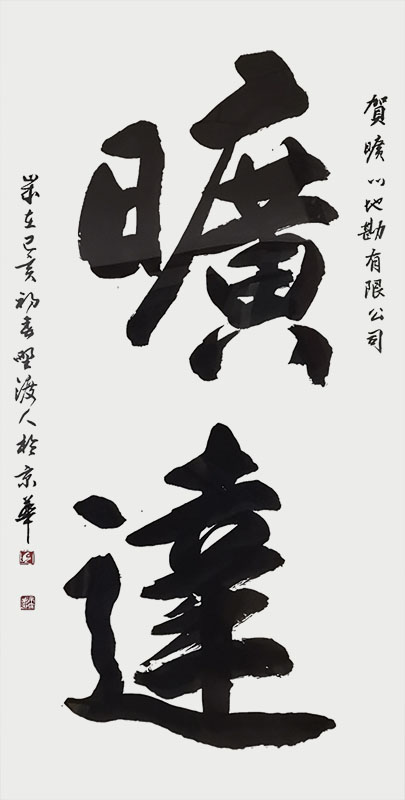 賀曠地勘有限公司
曠達
歲在己亥初春野渡人於京華